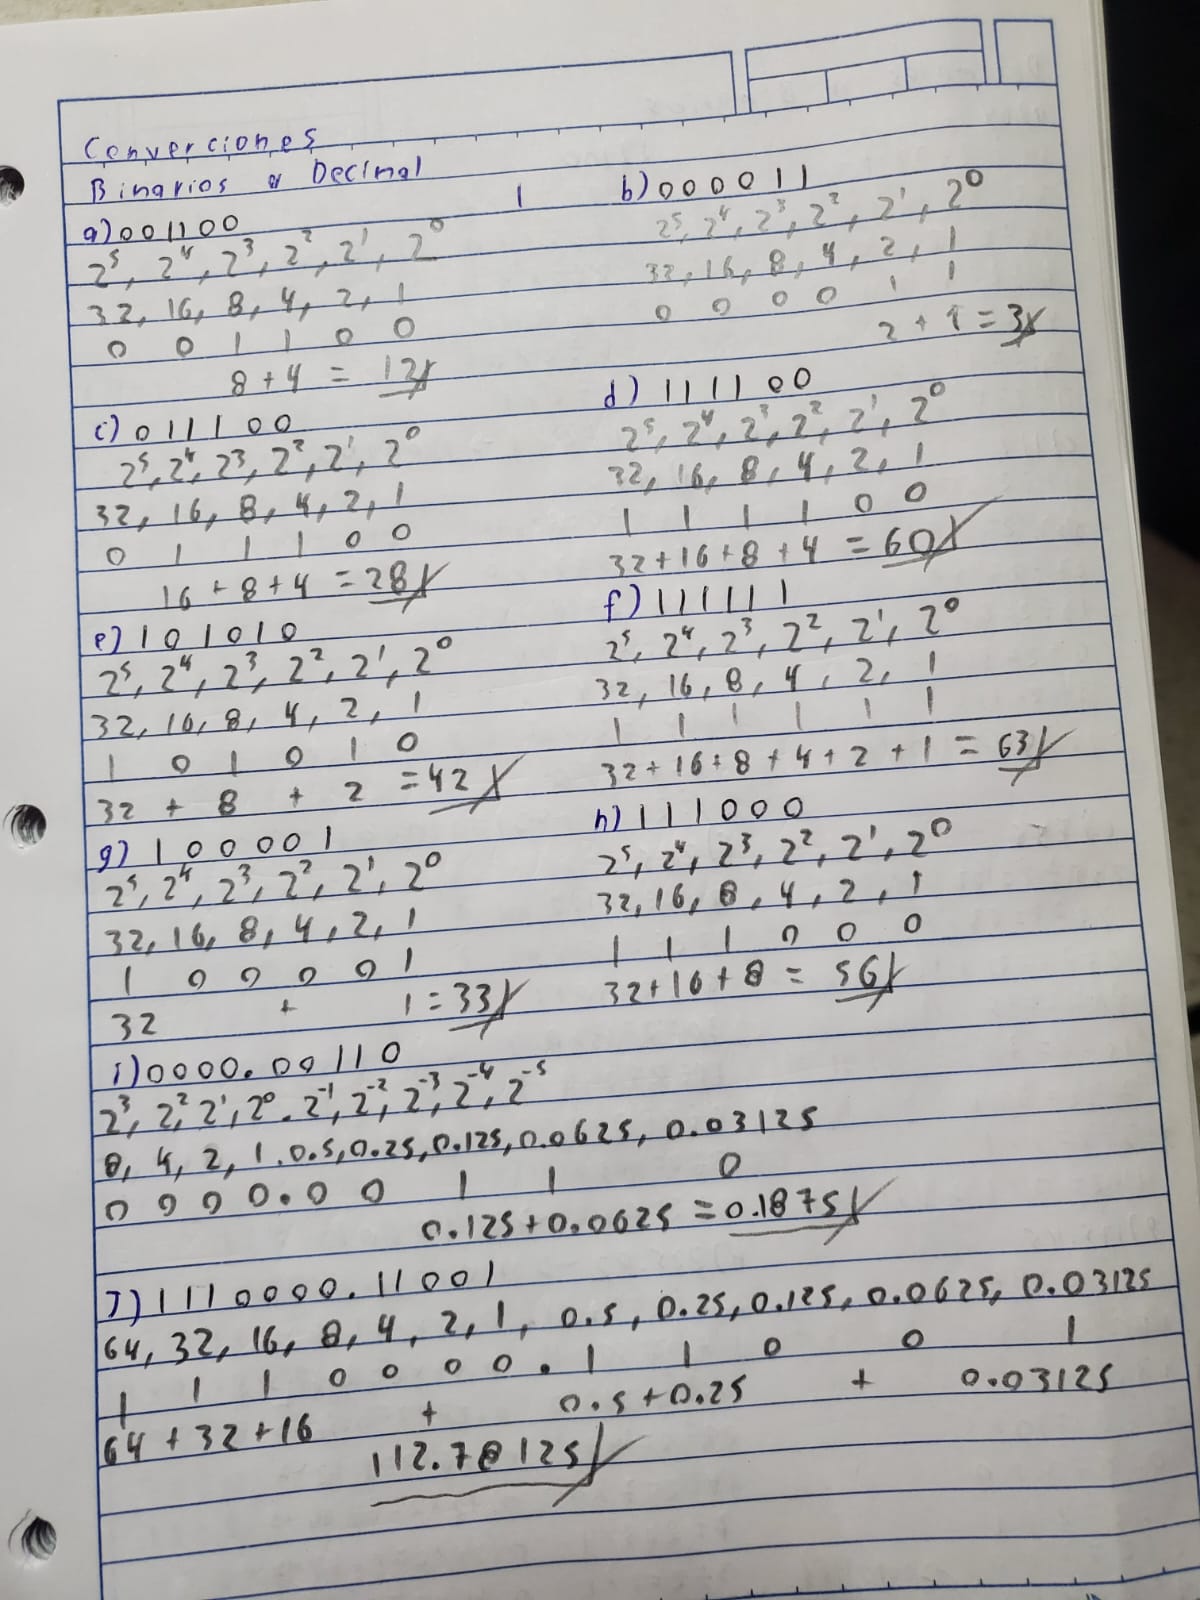 Converciones
Binarios a Decimal
a) 001100
2⁵, 2⁴, 2³, 2², 2¹, 2⁰
32, 16, 8, 4, 2, 1
0 0 1 1 0 0
8 + 4 = 12
b) 000011
2⁵, 2⁴, 2³, 2², 2¹, 2⁰
32, 16, 8, 4, 2, 1
0 0 0 0 1 1
2 + 1 = 3
c) 011100
2⁵, 2⁴, 2³, 2², 2¹, 2⁰
32, 16, 8, 4, 2, 1
0 1 1 1 0 0
16 + 8 + 4 = 28
d) 111100
2⁵, 2⁴, 2³, 2², 2¹, 2⁰
32, 16, 8, 4, 2, 1
1 1 1 1 0 0
32 + 16 + 8 + 4 = 60
e) 101010
2⁵, 2⁴, 2³, 2², 2¹, 2⁰
32, 16, 8, 4, 2, 1
1 0 1 0 1 0
32 + 8 + 2 = 42
f) 111111
2⁵, 2⁴, 2³, 2², 2¹, 2⁰
32, 16, 8, 4, 2, 1
1 1 1 1 1 1
32 + 16 + 8 + 4 + 2 + 1 = 63
g) 100001
2⁵, 2⁴, 2³, 2², 2¹, 2⁰
32, 16, 8, 4, 2, 1
1 0 0 0 0 1
32 + 1 = 33
h) 111000
2⁵, 2⁴, 2³, 2², 2¹, 2⁰
32, 16, 8, 4, 2, 1
1 1 1 0 0 0
32 + 16 + 8 = 56
i) 0000.00110
2³, 2², 2¹, 2⁰. 2⁻¹, 2⁻², 2⁻³, 2⁻⁴, 2⁻⁵
8, 4, 2, 1. 0.5, 0.25, 0.125, 0.0625, 0.03125
0 0 0 0. 0 0 1 1 0
0.125 + 0.0625 = 0.1875
J) 1110000.11001
64, 32, 16, 8, 4, 2, 1, 0.5, 0.25, 0.125, 0.0625, 0.03125
1 1 1 0 0 0 0. 1 1 0 0 1
64 + 32 + 16 + 0.5 + 0.25 + 0.03125
112.78125